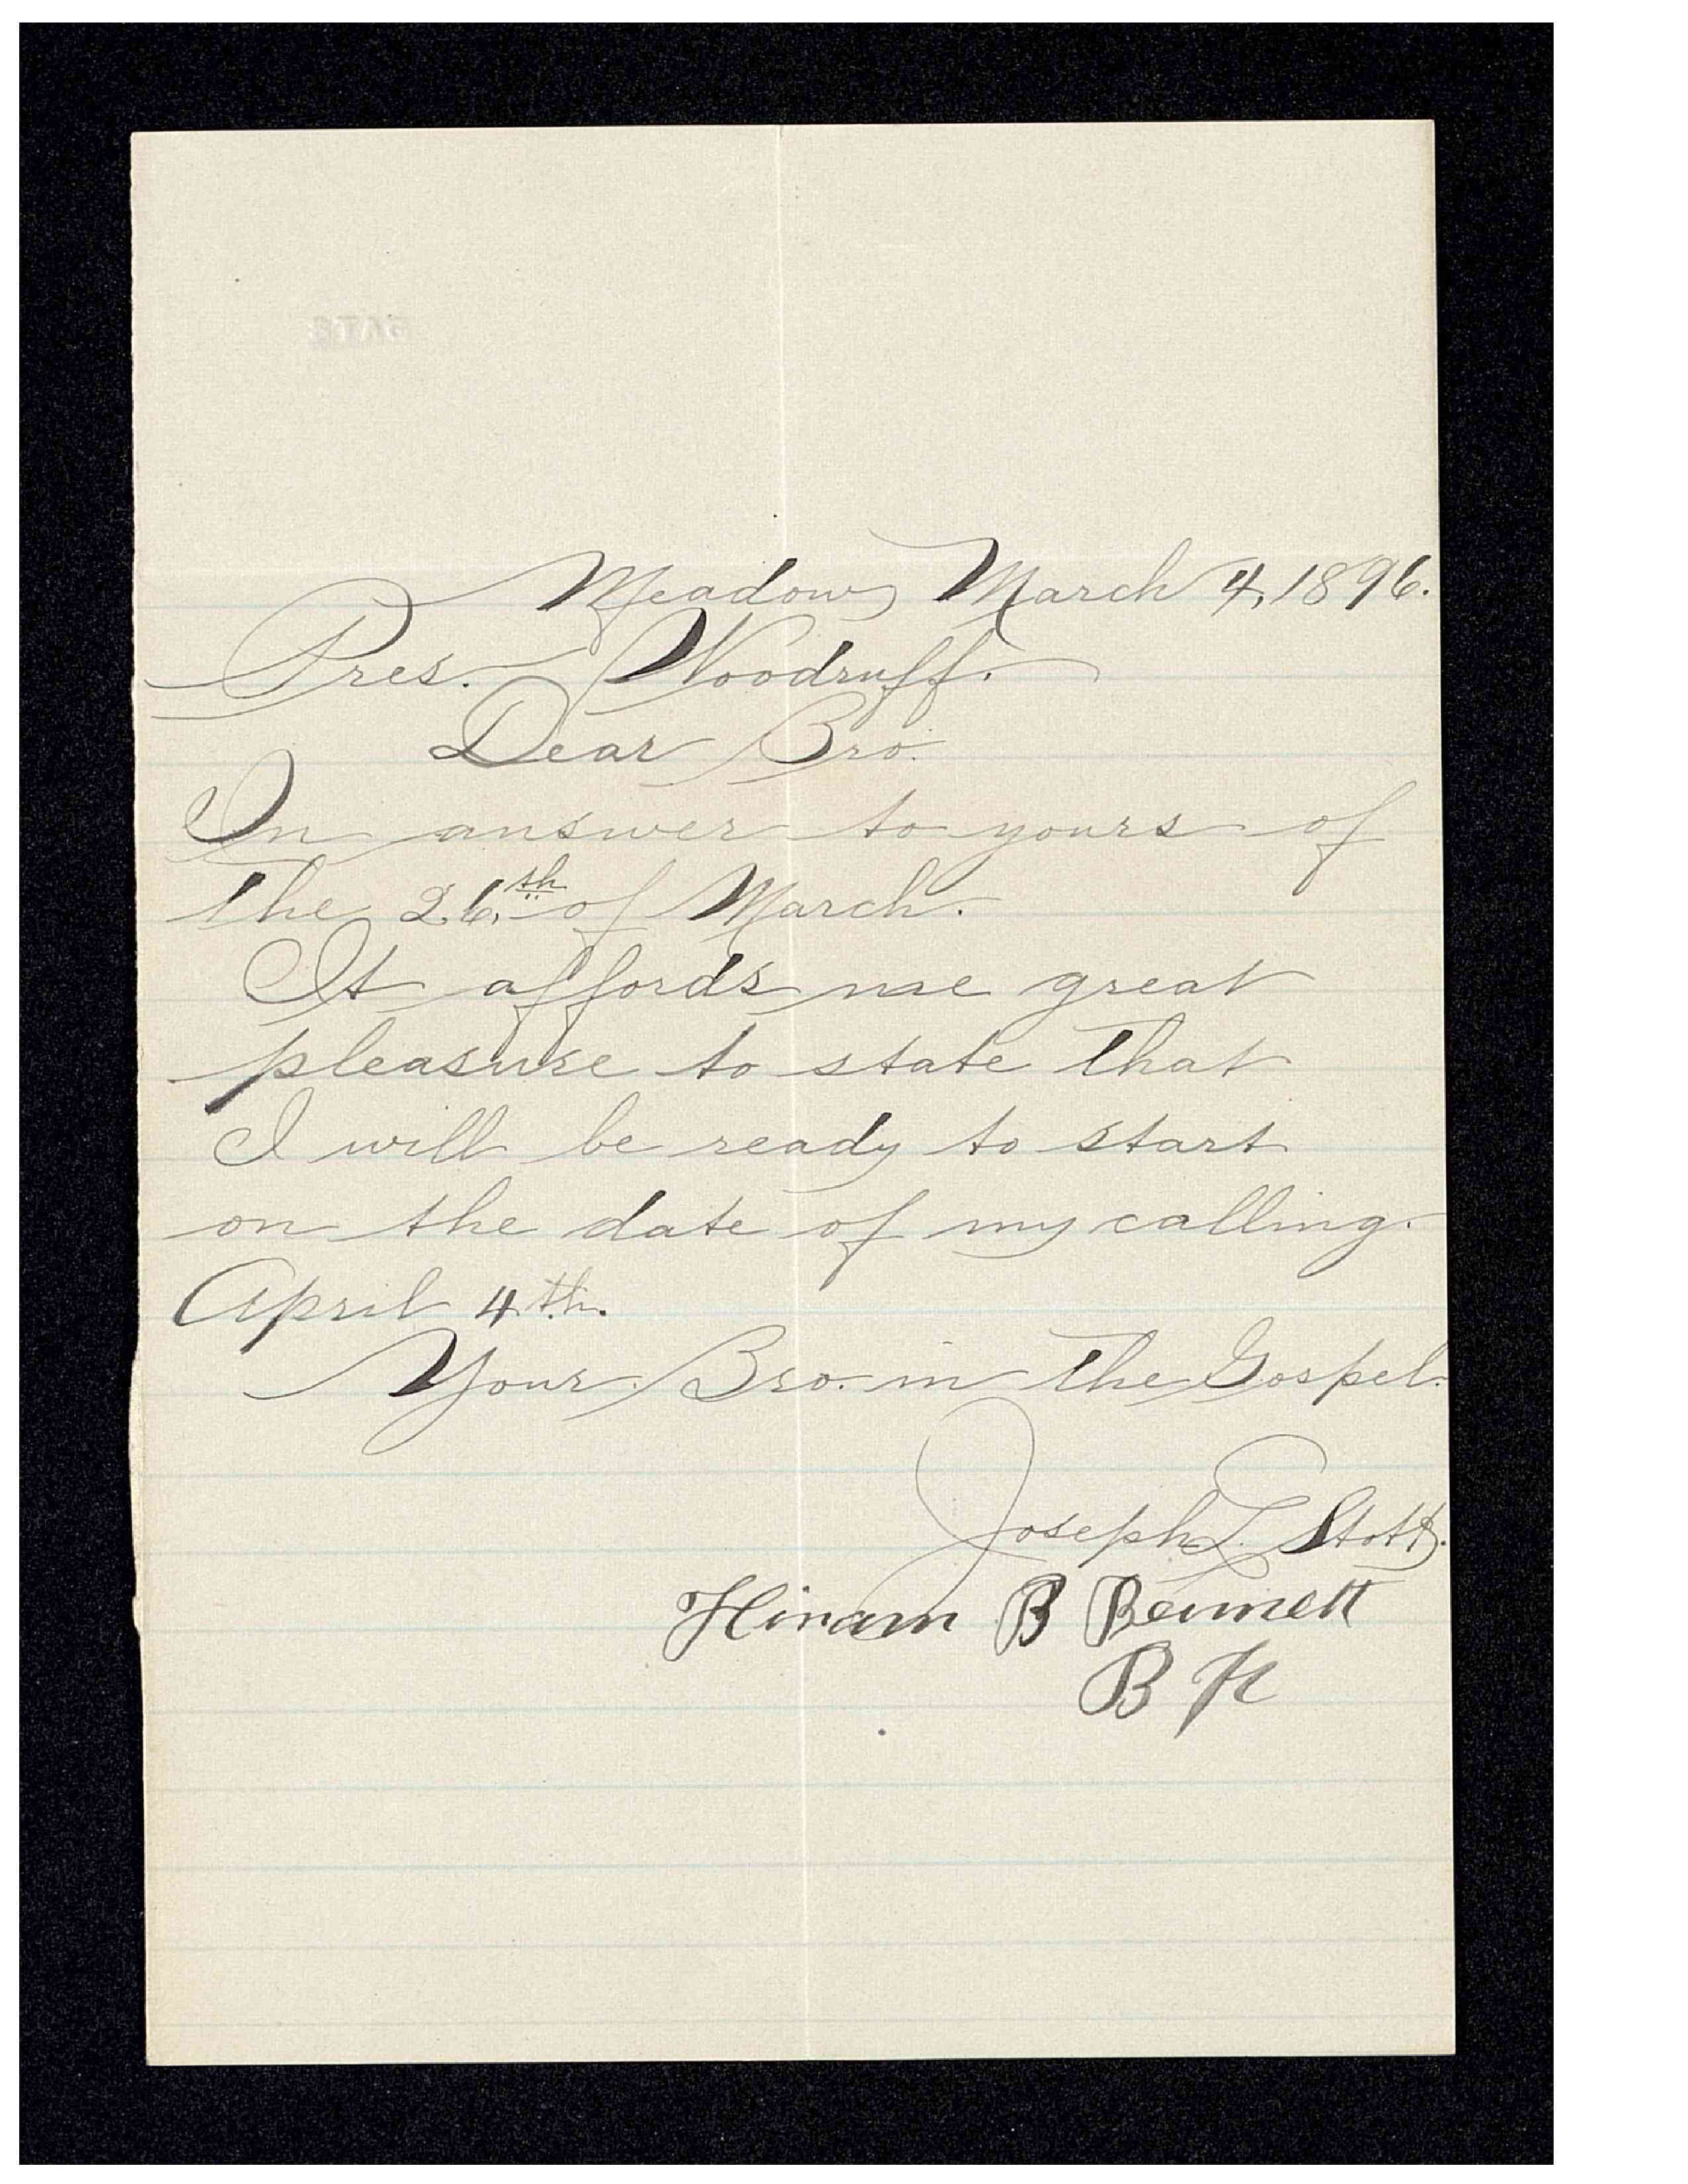 Meadow March 4, 1896.
Pres. Woodruff.
Dear Bro.
In answer to yours of
the 26th of March.
It affords me great
pleasure to state that
I will be ready to start
on the date of my calling.
April 4th.
Your Bro. in the Gospel.
Joseph L. Stott.
Hiram B Bennett
B